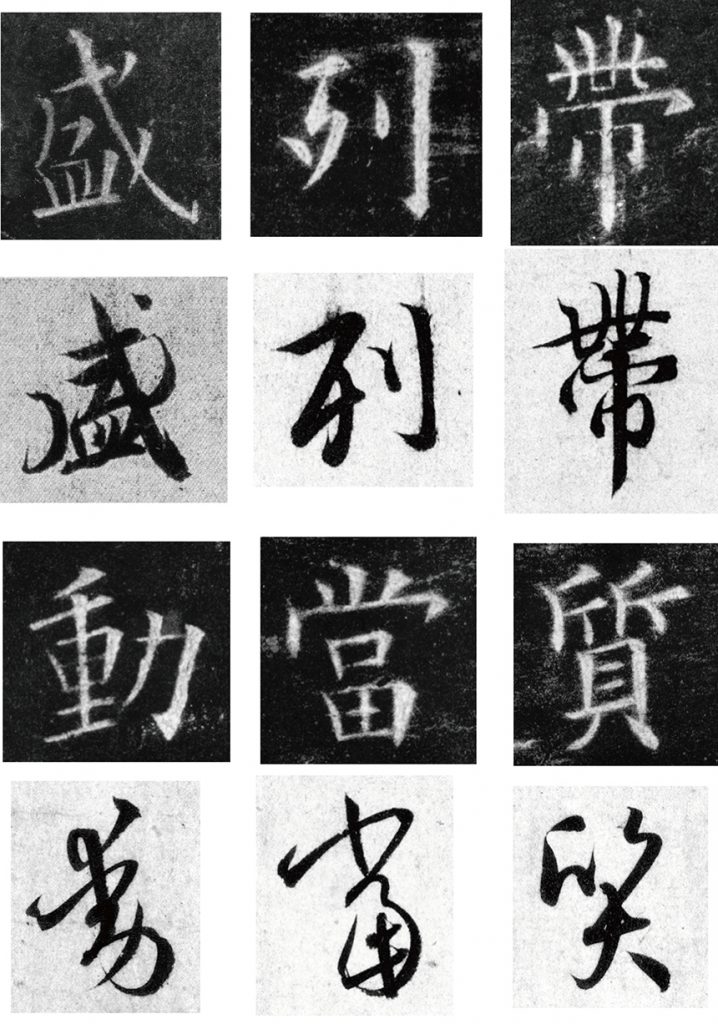 盛 列 帶
盛 列 帶
動 當 質
動 當 质